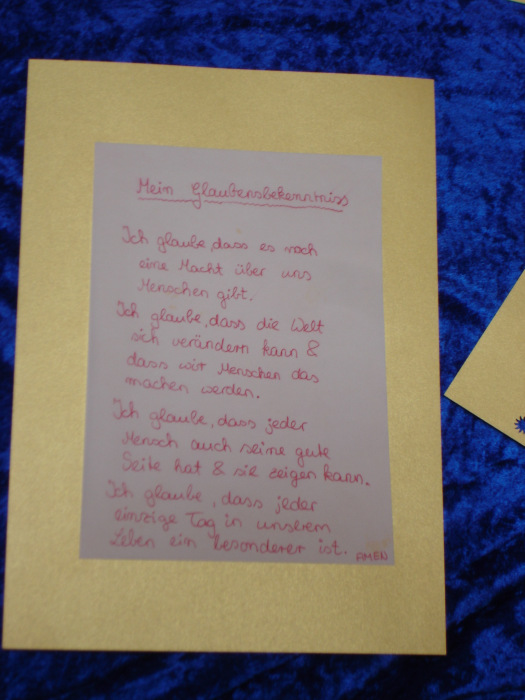 Mein Glaubensbekenntniss
Ich glaube, dass es noch
eine Macht über uns
Menschen gibt.
Ich glaube, dass die Welt
sich verändern kann &
dass wir Menschen das
machen werden.
Ich glaube, dass jeder
Mensch auch seine gute
Seite hat & sie zeigen kann.
Ich glaube, dass jeder
einzige Tag in unserem
Leben ein besonderer ist.
AMEN